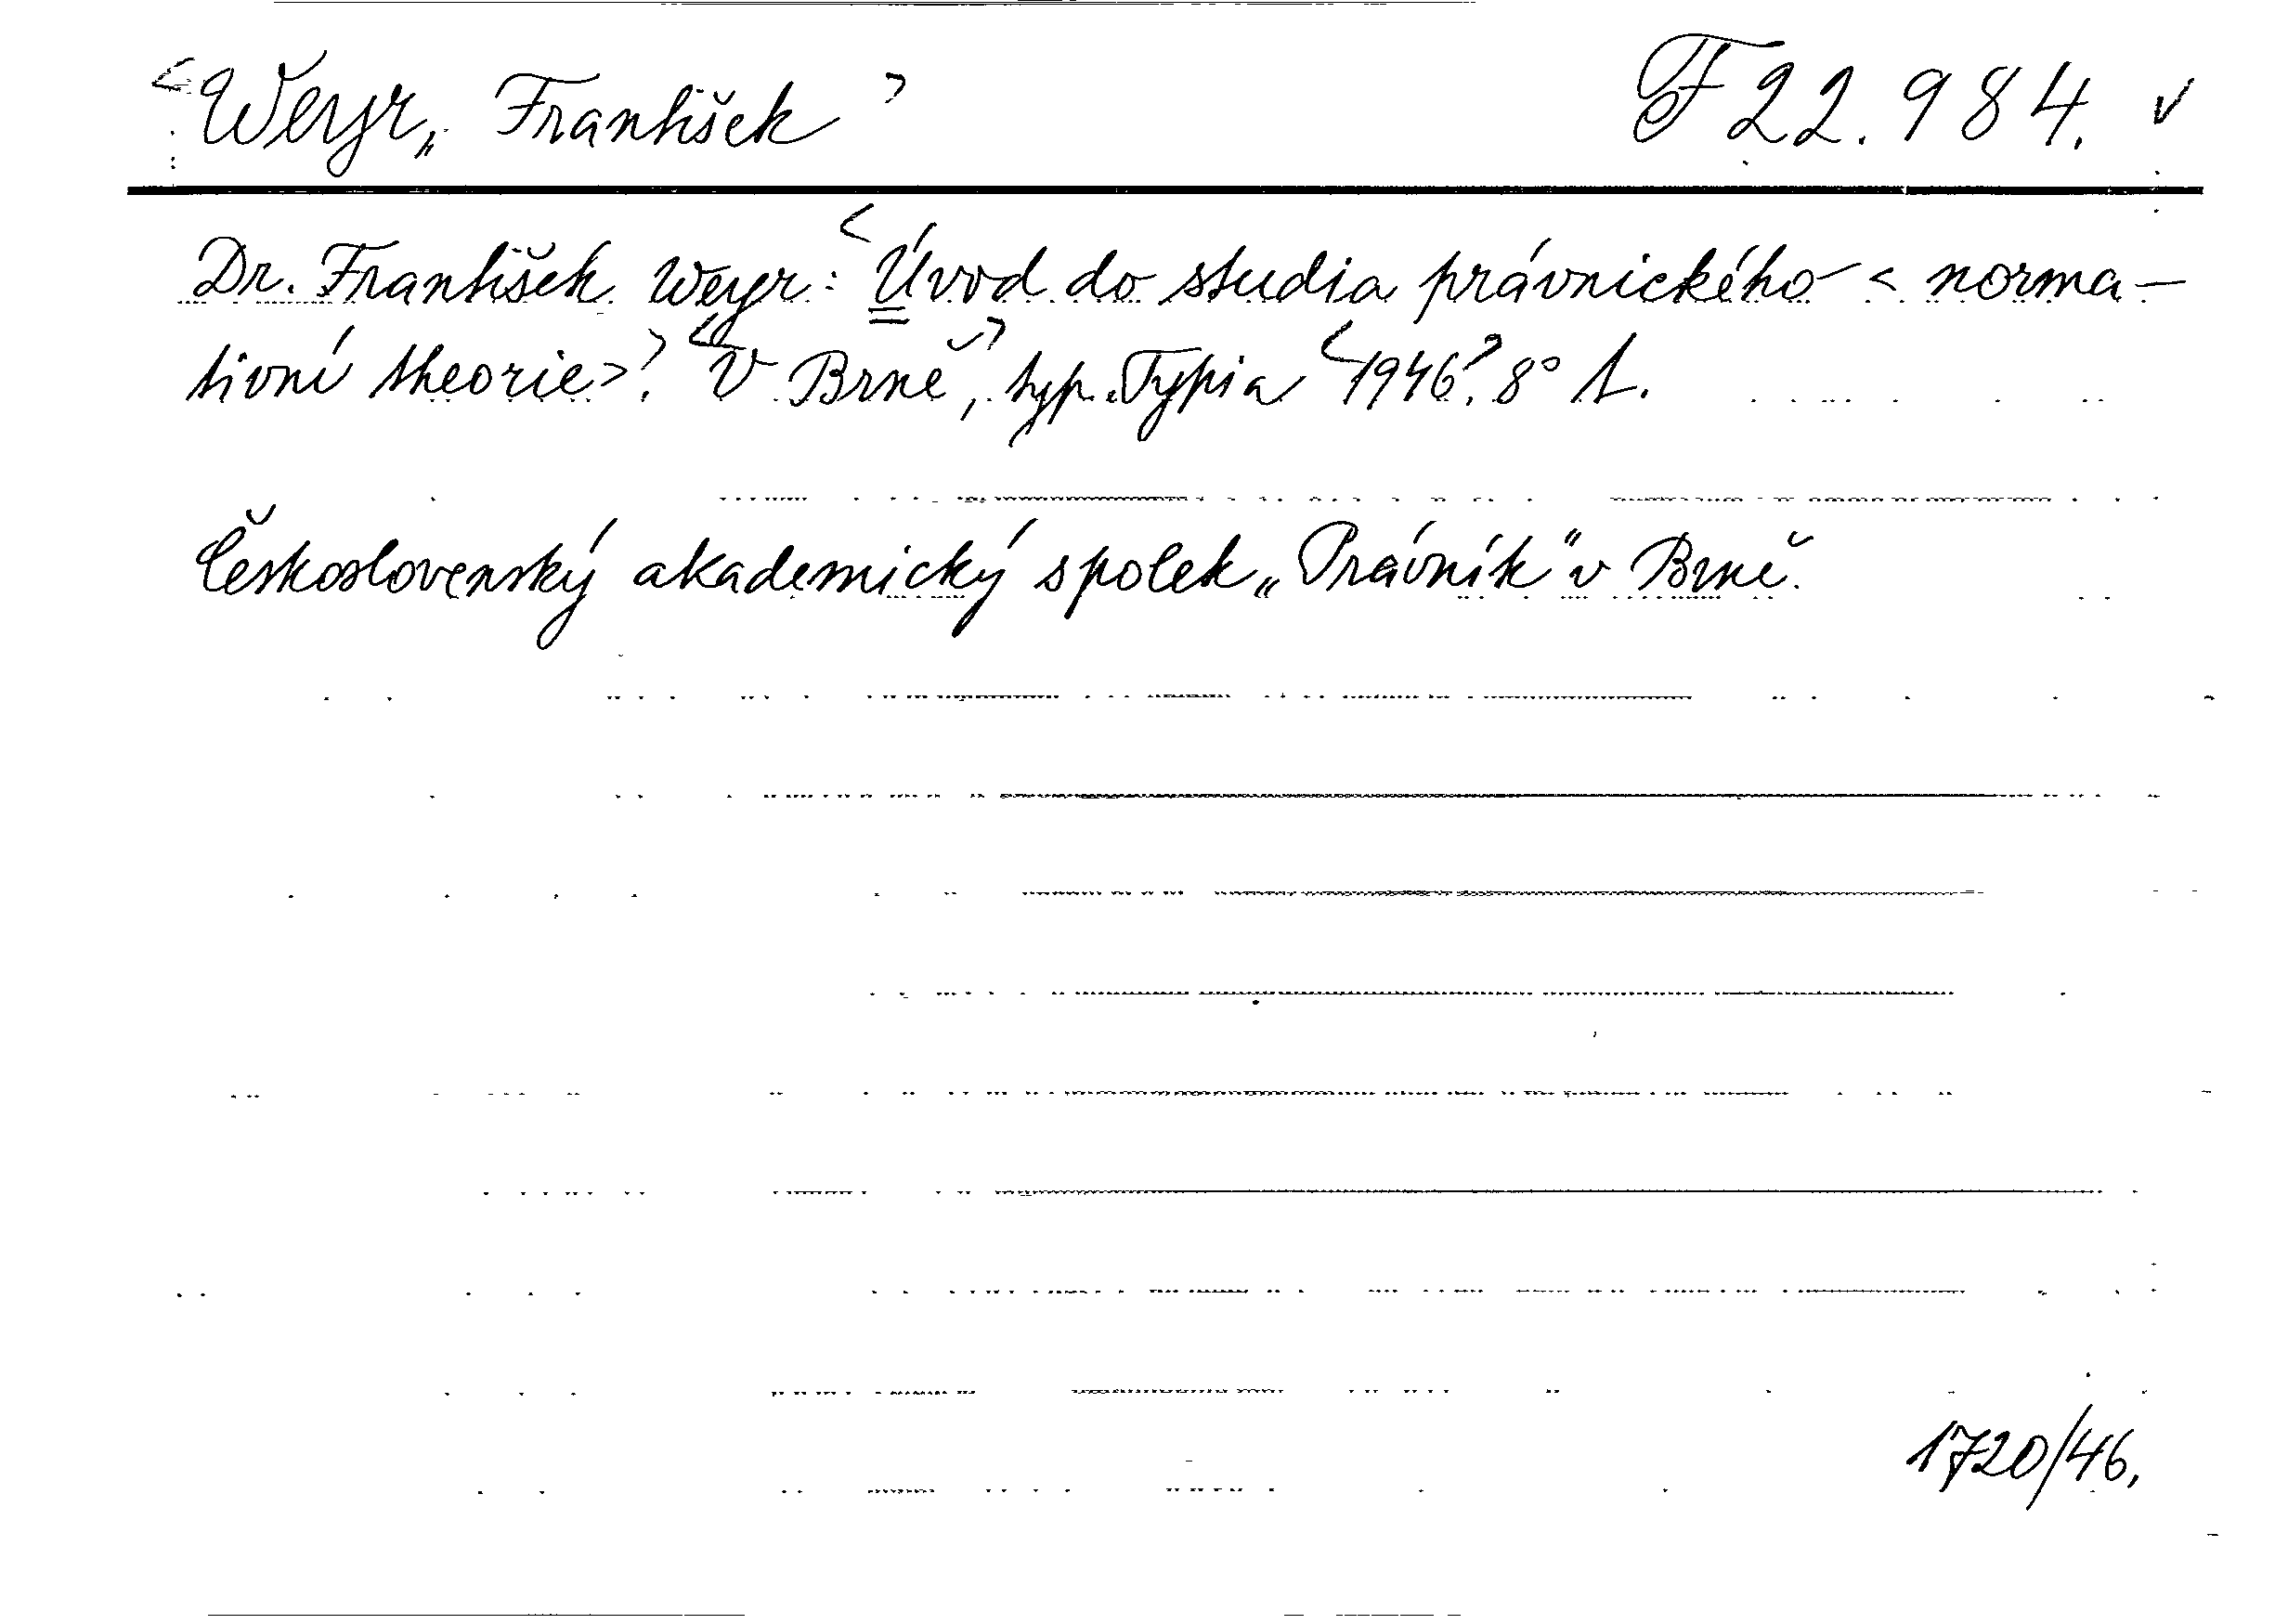 <Weyr, František> F 22.984. v
Dr. František Weyr: <Úvod do studia právnického < norma-
tivní theorie>>. <V Brně>, typ. Typia <1946>. 8° 1.
Československý akademický spolek „Právník“ v Brně.
1720/46,